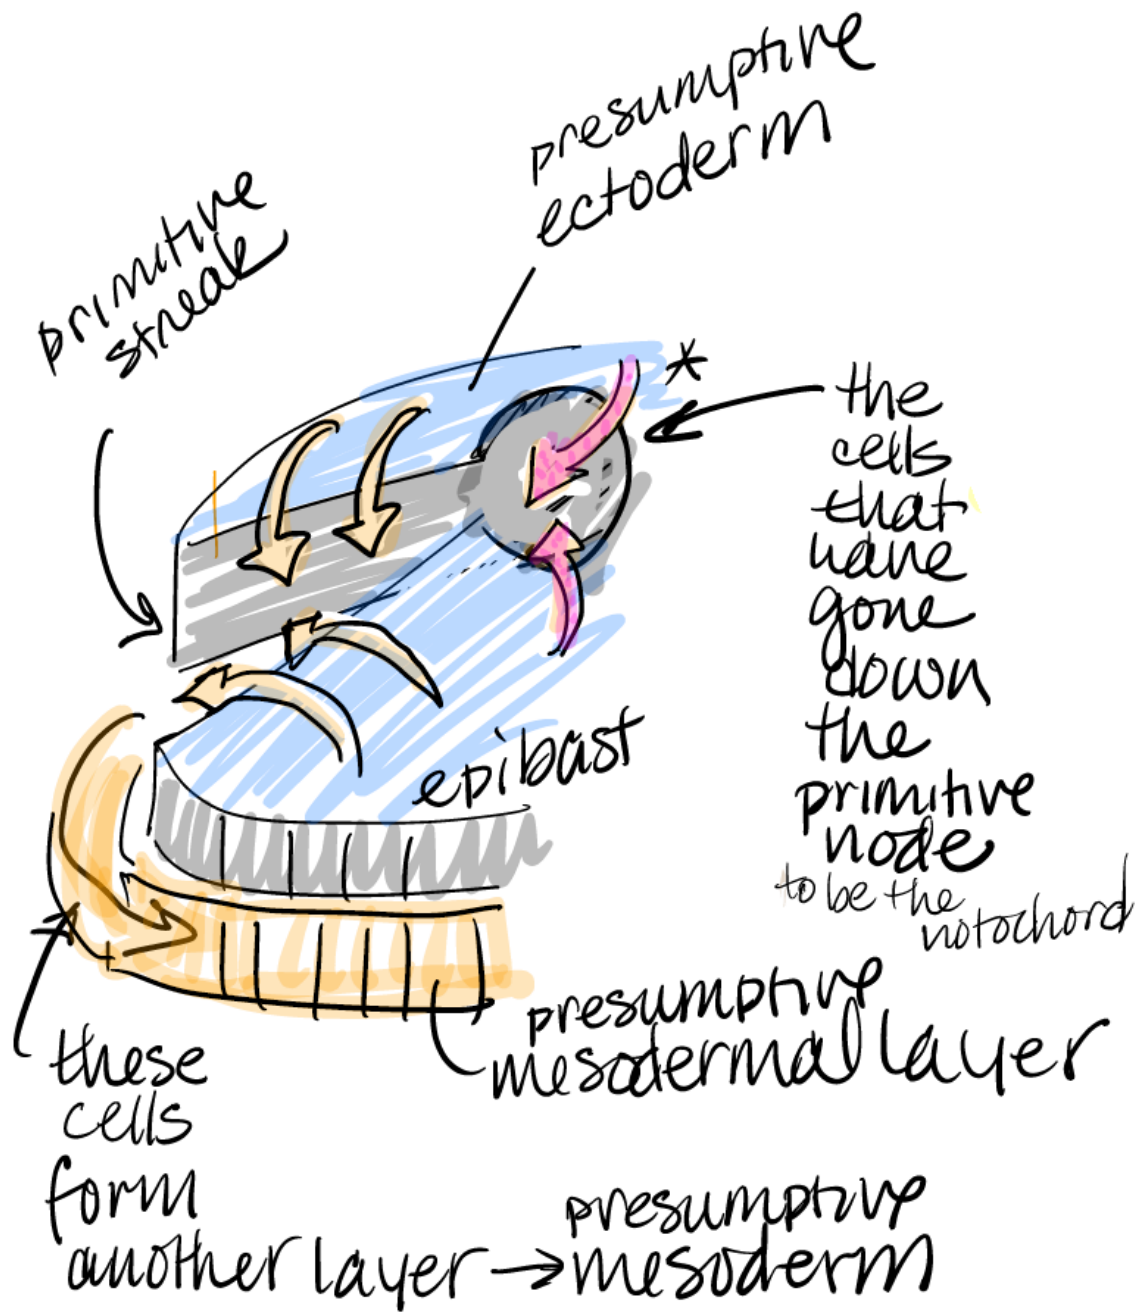 presumptive
ectoderm
primitive
streak
*
the
cells
that
have
gone
down
the
primitive
node
to be the
notochord
epibast
presumptive
mesodermal layer
these
cells
form
another layer → presumptive
mesoderm